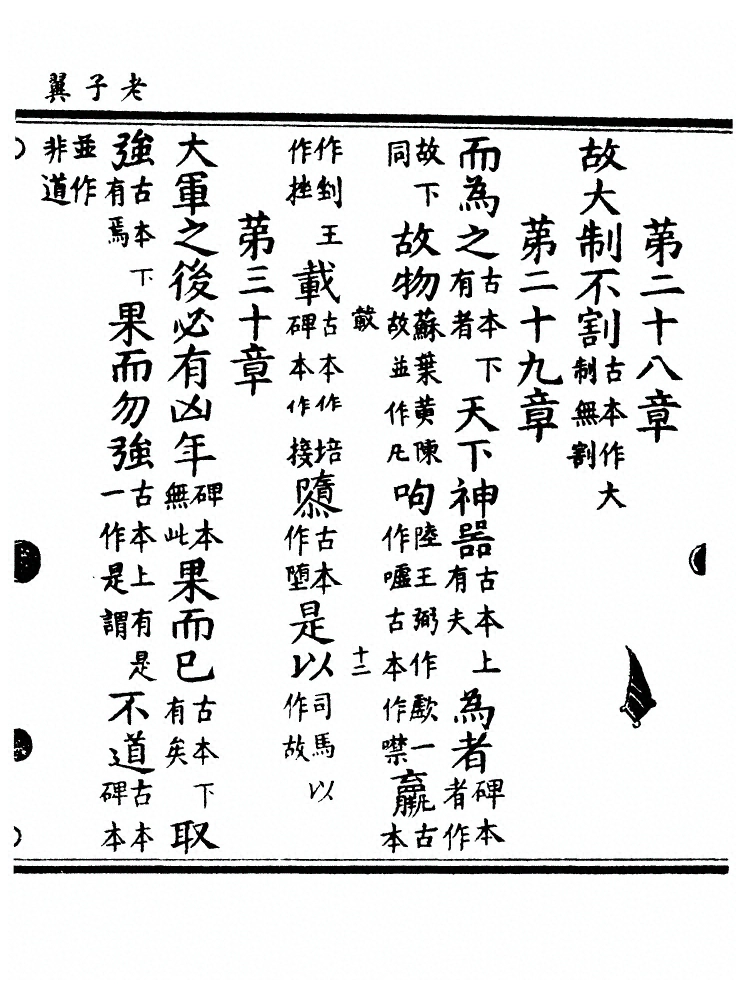 老子翼
第二十八章
故大制不割古本作大制無割
第二十九章
而為之古本下有者天下神器古本上有夫為者碑本者作
故下同故物蘇葉黃陳故並作凡呴陸王弼作歔一作噓古本作噤羸古本
十二
作剉王作挫載古本作培碑本作接隳古本作墮是以司馬以作故
第三十章
大軍之後必有凶年碑本無此果而已古本下有矣取
強古本下有焉果而勿強古本上有是一作是謂不道古本碑本
並作非道